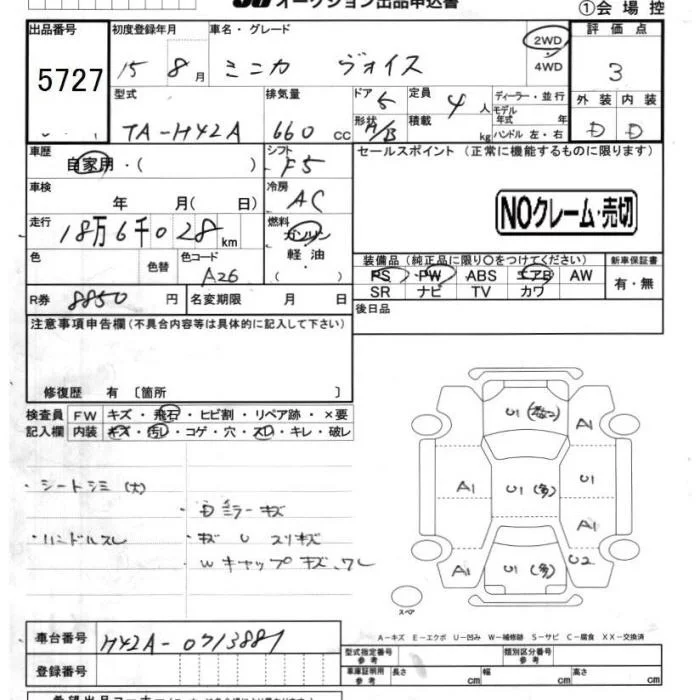 オークション出品申込書
①会場控
出品番号 初度登録年月 車名・グレード 評価点
5727 15 8月 ミニカ ヴォイス 2WD・4WD 3
型式 排気量 ドア 5 定員 4人 ディーラー・並行 外装 内装
TA-H42A 660cc 形状 H/B 積載 kg モデル年式 年 ハンドル 左・右 D D
車歴 自家用・( ) シフト F5 セールスポイント(正常に機能するものに限ります)
車検 年 月( 日) 冷房 AC
NOクレーム・売切
走行 18万6千028km 燃料 ガソリン・軽油 ( )
色 色替 色コード A26
装備品(純正品に限り〇をつけてください) 新車保証書
PS PW ABS エアB AW 有・無
SR ナビ TV カワ
R券 8850円 名変期限 月 日 後日品
注意事項申告欄(不具合内容等は具体的に記入して下さい)
修復歴 有〔箇所 〕
検査員 FW キズ・飛石・ヒビ割・リペア跡・×要
記入欄 内装 キズ・汚レ・コゲ・穴・スレ・キレ・破レ
・シートシミ(大)
・ハンドルスレ
・キズ U スリキズ
・Wキャップキズ、ワレ
A1
U1
A1 U1(多) U1
A1
A1 U1(多) U2
スペア
A-キズ E-エクボ U-凹み W-補修跡 S-サビ C-腐食 XX-交換済
車台番号 H42A-0713887
登録番号
型式指定番号 参考 類別区分番号 参考
車庫証明用 参考 長さ cm 幅 cm 高さ cm